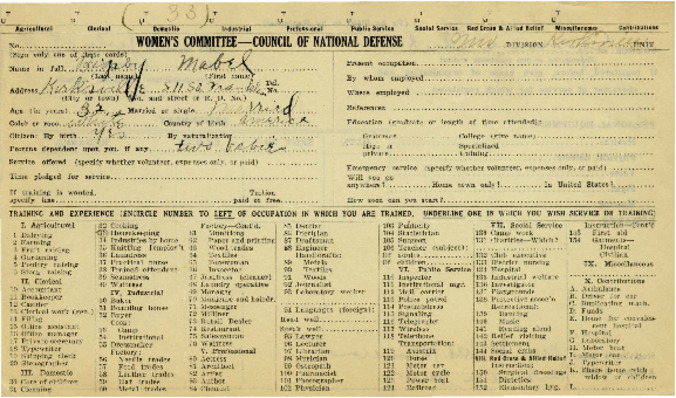 (33)
Agricultural Clerical Domestic Industrial Professional Public Service Social Service Red Cross & Allied Relief Miscellaneous Contributions
No. WOMEN'S COMMITTEE—COUNCIL OF NATIONAL DEFENSE DIVISION UNIT
(Sign only one of these cords)
Name in full Mabel
(Last name) (First name)
Address Kirksville 511 So. Franklin Tel. No.
(City or town) (No. and street or R. D. No.)
Age (in years) 32 Married or single Married
Color or race Country of birth America
Citizen: By birth yes By naturalization
Persons dependent upon you, if any two babies
Service offered (specify whether volunteer, expenses only, or paid)
Time pledged for service
If training is wanted, Tuition
specify line paid or free.
Present occupation
By whom employed
Where employed
References
Education (graduate or length of time attended):
Grammar College (give name)
High or Specialized
private training
Emergency service (specify whether volunteer, expenses only, or paid)
Will you go
anywhere? Home town only? In United States?
How soon can you start?
TRAINING AND EXPERIENCE (ENCIRCLE NUMBER TO LEFT OF OCCUPATION IN WHICH YOU ARE TRAINED, UNDERLINE ONE IN WHICH YOU WISH SERVICE OR TRAINING)
I. Agricultural
1 Dairying
2 Farming
3 Fruit raising
4 Gardening
5 Poultry raising
6 Stock raising
II. Clerical
9 Accountant
10 Bookkeeper
11 Cashier
12 Clerical work (gen.)
14 Filing
15 Office assistant
16 Office manager
17 Private secretary
18 Typewriter
19 Shipping clerk
20 Stenographer
III. Domestic
30 Care of children
31 Cleaning
32 Cooking
33 Housekeeping
34 Industries by home
35 Knitting
36 Laundress
37 Practical nurse
38 Trained attendant
39 Seamstress
40 Waitress
IV. Industrial
50 Baker
51 Boarding house
52 Buyer
Cook:
53 Camp
54 Institutional
55 Dressmaker
Factory:
56 Needle trades
57 Food trades
58 Leather trades
59 Hat trades
60 Metal trades
Factory—Cont'd.
61 Munitions
62 Paper and printing
63 Wood trades
64 Textiles
65 Forewoman
66 Inspector
68 Laundry operative
69 Manager
72 Milliner
73 Retail Dealer
74 Restaurant
75 Saleswoman
76 Waitress
V. Professional
80 Architect
82 Artist
83 Author
84 Chemist
85 Dentist
86 Dietitian
87 Draftsman
88 Engineer
Handicrafts:
89 Metals
90 Textiles
91 Woods
92 Journalist
93 Laboratory worker
94 Languages (foreign):
Read well
Speak well
95 Lawyer
96 Lecturer
97 Librarian
98 Musician
99 Osteopath
100 Pharmacist
101 Photographer
102 Physician
103 Publicity
104 Statistician
105 Support
106 Teacher (subject)
VI. Public Service
110 Inspector
111 Institutional mgt.
112 Mail carrier
113 Police patrol
114 Signalling
115 Telegrapher
117 Wireless
118 Telephone
Transportation:
119 Aviatrix
120 Driver
121 Motor car
122 Motor cycle
123 Power boat
124 Railroad
VII. Social Service
130 Camp work
131 Charities—Which?
132 Club executive
133 District nursing
134 Hospital
135 Industrial welfare
136 Investigator
137 Playgrounds
138 Protective assoc'n
Recreational:
139 Dancing
140 Music
141 Reading aloud
142 Relief visiting
143 Settlement
144 Social clubs
VIII. Red Cross & Allied Relief
Instruction:
150 Surgical dressings
151 Dietetics
152 Elementary hyg.
Instruction—Cont'd
153 First aid
154 Garments—
Hospital
Civilian
IX. Miscellaneous
X. Contributions
A. Ambulance
B. Driver for car
C. Duplicating mach.
D. Funds
E. Home for convalescent hospital
F. Hospital
G. Laboratory
H. Motor boat
I. Motor car
J. Typewriter